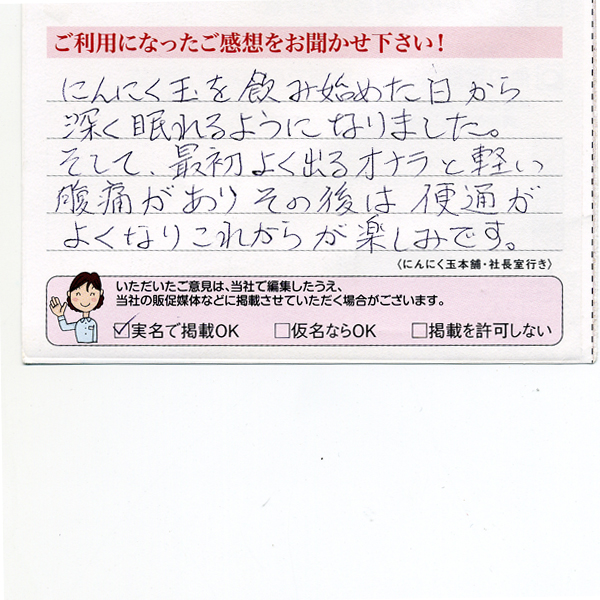 ご利用になったご感想をお聞かせ下さい！
にんにく玉を飲み始めた日から
深く眠れるようになりました。
そして、最初よく出るオナラと軽い
腹痛がありその後は便通が
よくなりこれからが楽しみです。
〈にんにく玉本舗・社長室行き〉
いただいたご意見は、当社で編集したうえ、
当社の販促媒体などに掲載させていただく場合がございます。
☑実名で掲載OK □仮名ならOK □掲載を許可しない